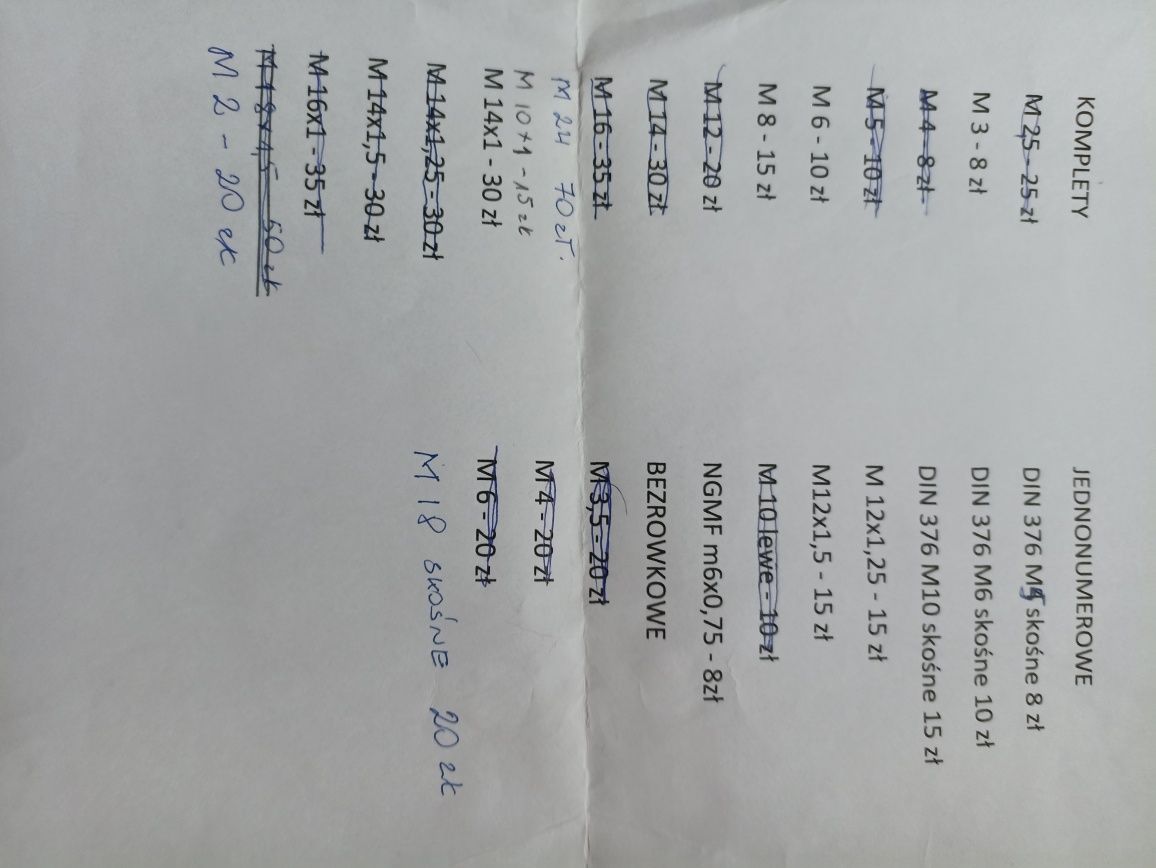 KOMPLETY
M 2,5 - 25 zł
M 3 - 8 zł
M 4 - 8 zł
M 5 - 10 zł
M 6 - 10 zł
M 8 - 15 zł
M 12 - 20 zł
M 14 - 30 zł
M 16 - 35 zł
M 24 70 zł.
M 10x1 - 15 zł
M 14x1 - 30 zł
M 14x1,25 - 30 zł
M 14x1,5 - 30 zł
M 16x1 - 35 zł
M 18x1,5 50 zł
M 2 - 20 zł
JEDNONUMEROWE
DIN 376 M5 skośne 8 zł
DIN 376 M6 skośne 10 zł
DIN 376 M10 skośne 15 zł
M 12x1,25 - 15 zł
M12x1,5 - 15 zł
M 10 lewe - 10 zł
NGMF m6x0,75 - 8zł
BEZROWKOWE
M 3,5 - 20 zł
M 4 - 20 zł
M 6 - 20 zł
M 18 SKOŚNE 20 zł